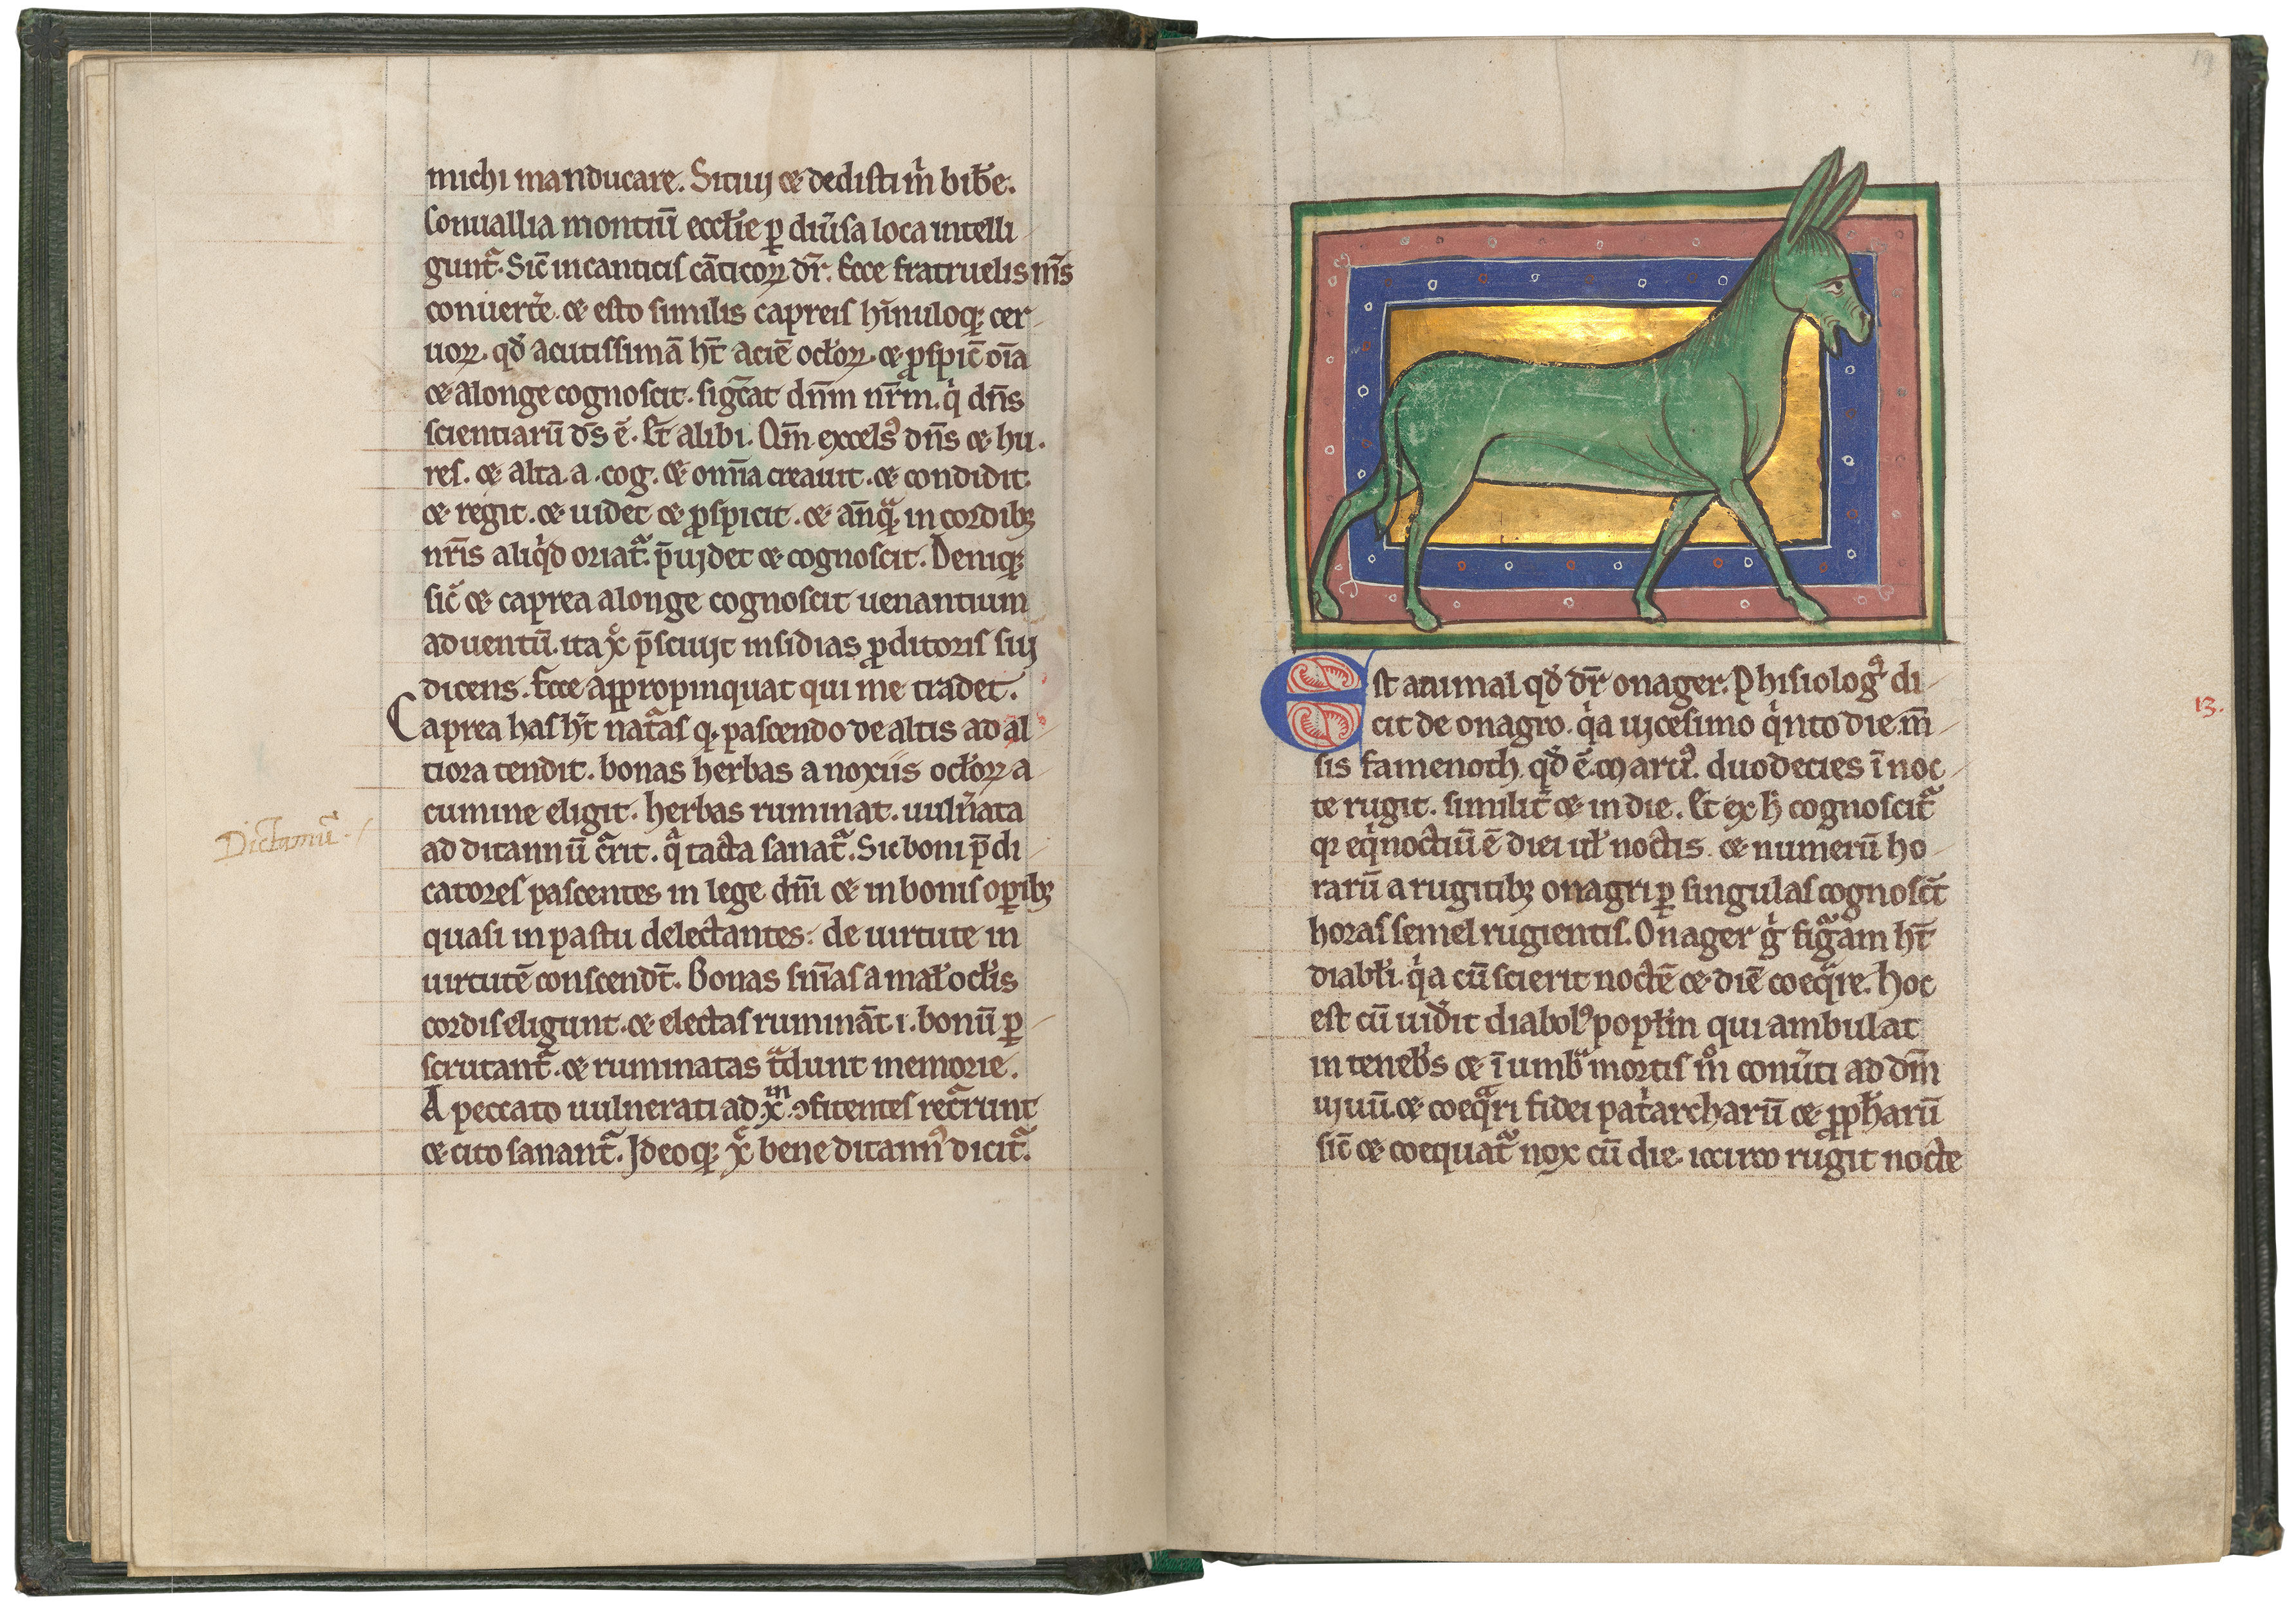 michi manducare. Sitiuj ⁊ dedisti m̃ bibẽ.
Conuallia montiũ eccłie ꝑ diũsa loca intelli
gunt᷑. Sic̃ in canticis cãticoꝝ dr̃. Ecce fratruelis m̃s
conuert̃e. ⁊ esto similis capreis hĩnuloqꝫ cer
uoꝝ. qđ acutissimã ht̃ aciẽ ocłoꝝ. ⁊ ꝓspic̃ oĩa
⁊ alonge cognoscit. sigc̃at dñm nr̃m. qͥ dñs
scientiarũ d̃s ẽ. Et alibi. Qm̃ excelsꝰ dñs ⁊ hu.
res. ⁊ alta. a. cog. ⁊ om̃ia creauit. ⁊ condidit.
⁊ regit. ⁊ uidet ⁊ ꝓspicit. ⁊ añqᷓ in cordibꝫ
nr̃is aliqͥd oriat᷑. p̃uidet ⁊ cognoscit. Deniqꝫ
sic̃ ⁊ caprea alonge cognoscit uenantium
aduentũ. ita xc̃ p̃sciujt insidias ꝓditoris suj
dicens. Ecce appropinquat qui me tradet.
Caprea has ht̃ nat᷑as q. pascendo de altis ad al
tiora tendit. bonas herbas a noxiis ocłoꝝ a
cumine eligit. herbas ruminat. uulñata
ad ditannũ c̃rit. qᷓ tacta sanat᷑. Sic boni p̃di
catores pascentes in lege dñi ⁊ in bonis oꝑibꝫ
quasi in pastu delectantes. de uirtute in
uirtutẽ conscendt̃. Bonas sñias a mał ocłis
cordis eligunt. ⁊ electas ruminãt. i. bonũ ꝑ
scrutant᷑. ⁊ ruminatas tᷓdunt memorie.
A peccato uulnerati ad xm̃. ꝯfitentes rec̃runt
⁊ cito sanant᷑. Jdeoqꝫ xc̃ bene ditannꝰ dicit᷑.
Dictamũ.
Est animal qđ dr̃ onager. Phisiologꝰ di
cit de onagro. qͥa ujcesimo qͥnto die m̃
sis famenoth. qđ ẽ marciꝰ. duodecies ĩ noc
te rugit. similit̃ ⁊ in die. Et ex h̃ cognoscit᷑
qꝛ eqͥnoctiũ ẽ diei uł noctis. ⁊ numerũ ho
rarũ a rugitibꝫ onagri ꝑ singulas cognosct̃
horas semel rugientis. Onager gͥ figᷓam ht̃
diabłi. qͥa cũ scierit noctẽ ⁊ diẽ coeqᷓre. hoc
est cũ uid̃it diabolꝰ popłm qui ambulat
in tenebͥs ⁊ ĩ umbᷓ mortis mͦ conũti ad dm̃
ujuũ. ⁊ coeqᷓri fidei patͥarcharũ ⁊ ꝓph̃arũ
sic̃ ⁊ coequat᷑ nox cũ die. iccirco rugit nocte
19
13.